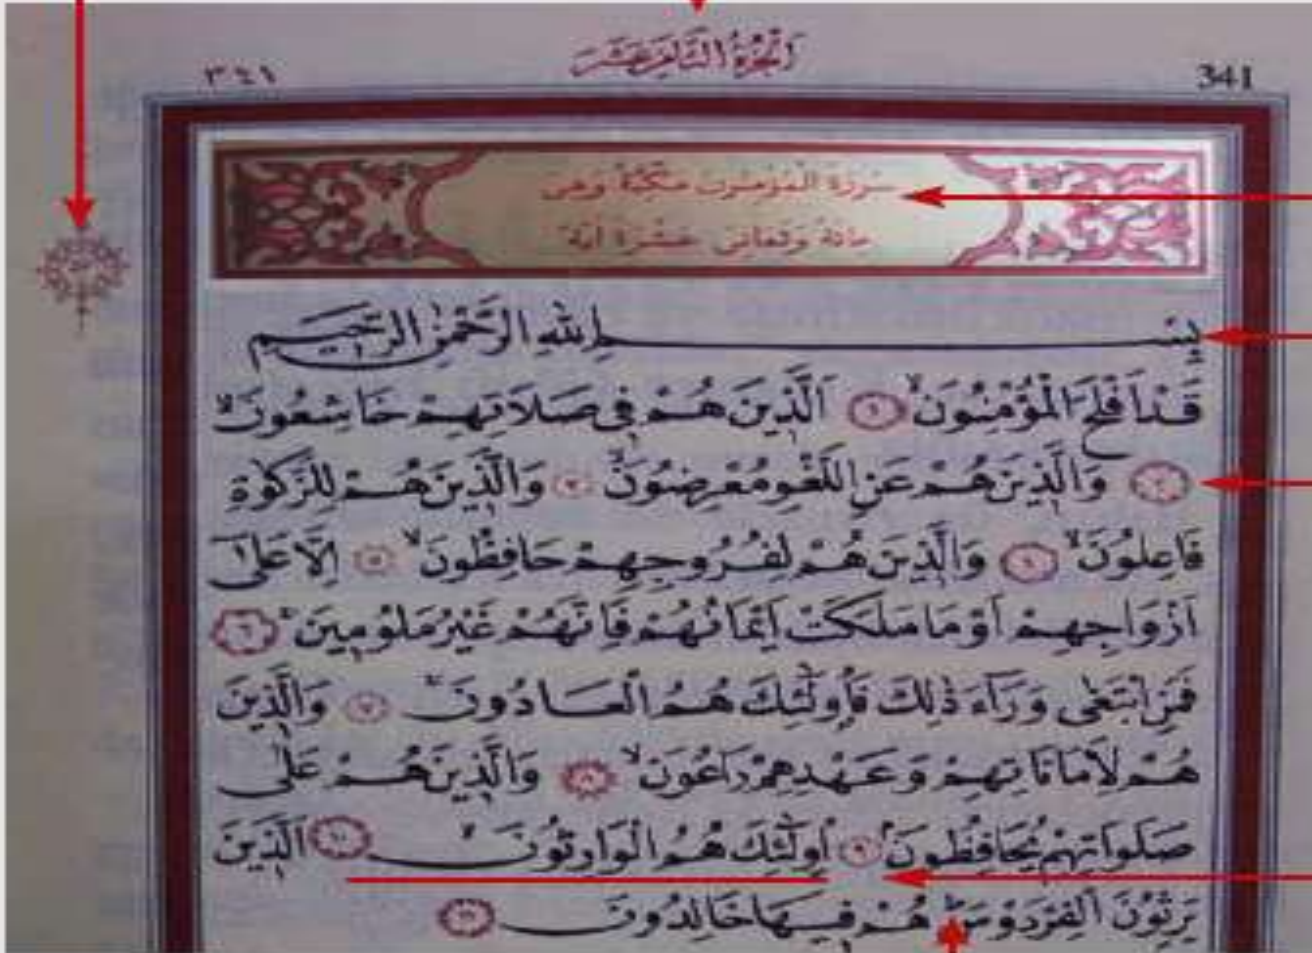 اَلْجُزْءُ الثَّامِنَ عَشَرَ
٣٤١ 341
سُورَةُ الْمُؤْمِنُونَ مَكِّيَّةٌ وَهِىَ
مِائَةٌ وَثَمَانِى عَشْرَةَ اٰيَةً
بِسْــــــــــــــمِ اللّٰهِ الرَّحْمٰنِ الرَّحِيمِ
قَدْ اَفْلَحَ الْمُؤْمِنُونَۙ ١ اَلَّذِينَ هُمْ فِى صَلَاتِهِمْ خَاشِعُونَۙ
٢ وَالَّذِينَ هُمْ عَنِ اللَّغْوِ مُعْرِضُونَۙ ٣ وَالَّذِينَ هُمْ لِلزَّكٰوةِ
فَاعِلُونَۙ ٤ وَالَّذِينَ هُمْ لِفُرُوجِهِمْ حَافِظُونَۙ ٥ اِلَّا عَلٰٓى
اَزْوَاجِهِمْ اَوْ مَا مَلَكَتْ اَيْمَانُهُمْ فَاِنَّهُمْ غَيْرُ مَلُومِينَۚ ٦
فَمَنِ ابْتَغٰى وَرَٓاءَ ذٰلِكَ فَاُولٰٓئِكَ هُمُ الْعَادُونَۚ ٧ وَالَّذِينَ
هُمْ لِاَمَانَاتِهِمْ وَعَهْدِهِمْ رَاعُونَۙ ٨ وَالَّذِينَ هُمْ عَلٰى
صَلَوَاتِهِمْ يُحَافِظُونَۘ ٩ اُولٰٓئِكَ هُمُ الْوَارِثُونَۙ ١٠ اَلَّذِينَ
يَرِثُونَ الْفِرْدَوْسَۜ هُمْ فِيهَا خَالِدُونَ ١١